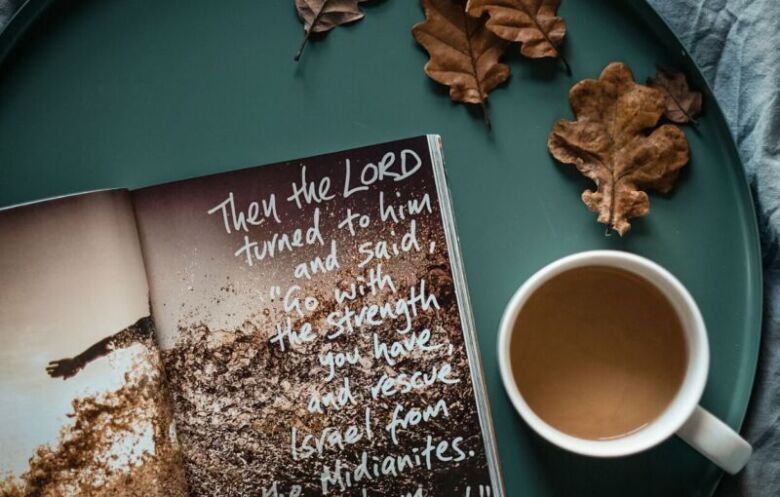 Then the LORD
turned to him
and said,
"Go with
the strength
you have,
and rescue
Israel from
the Midianites.